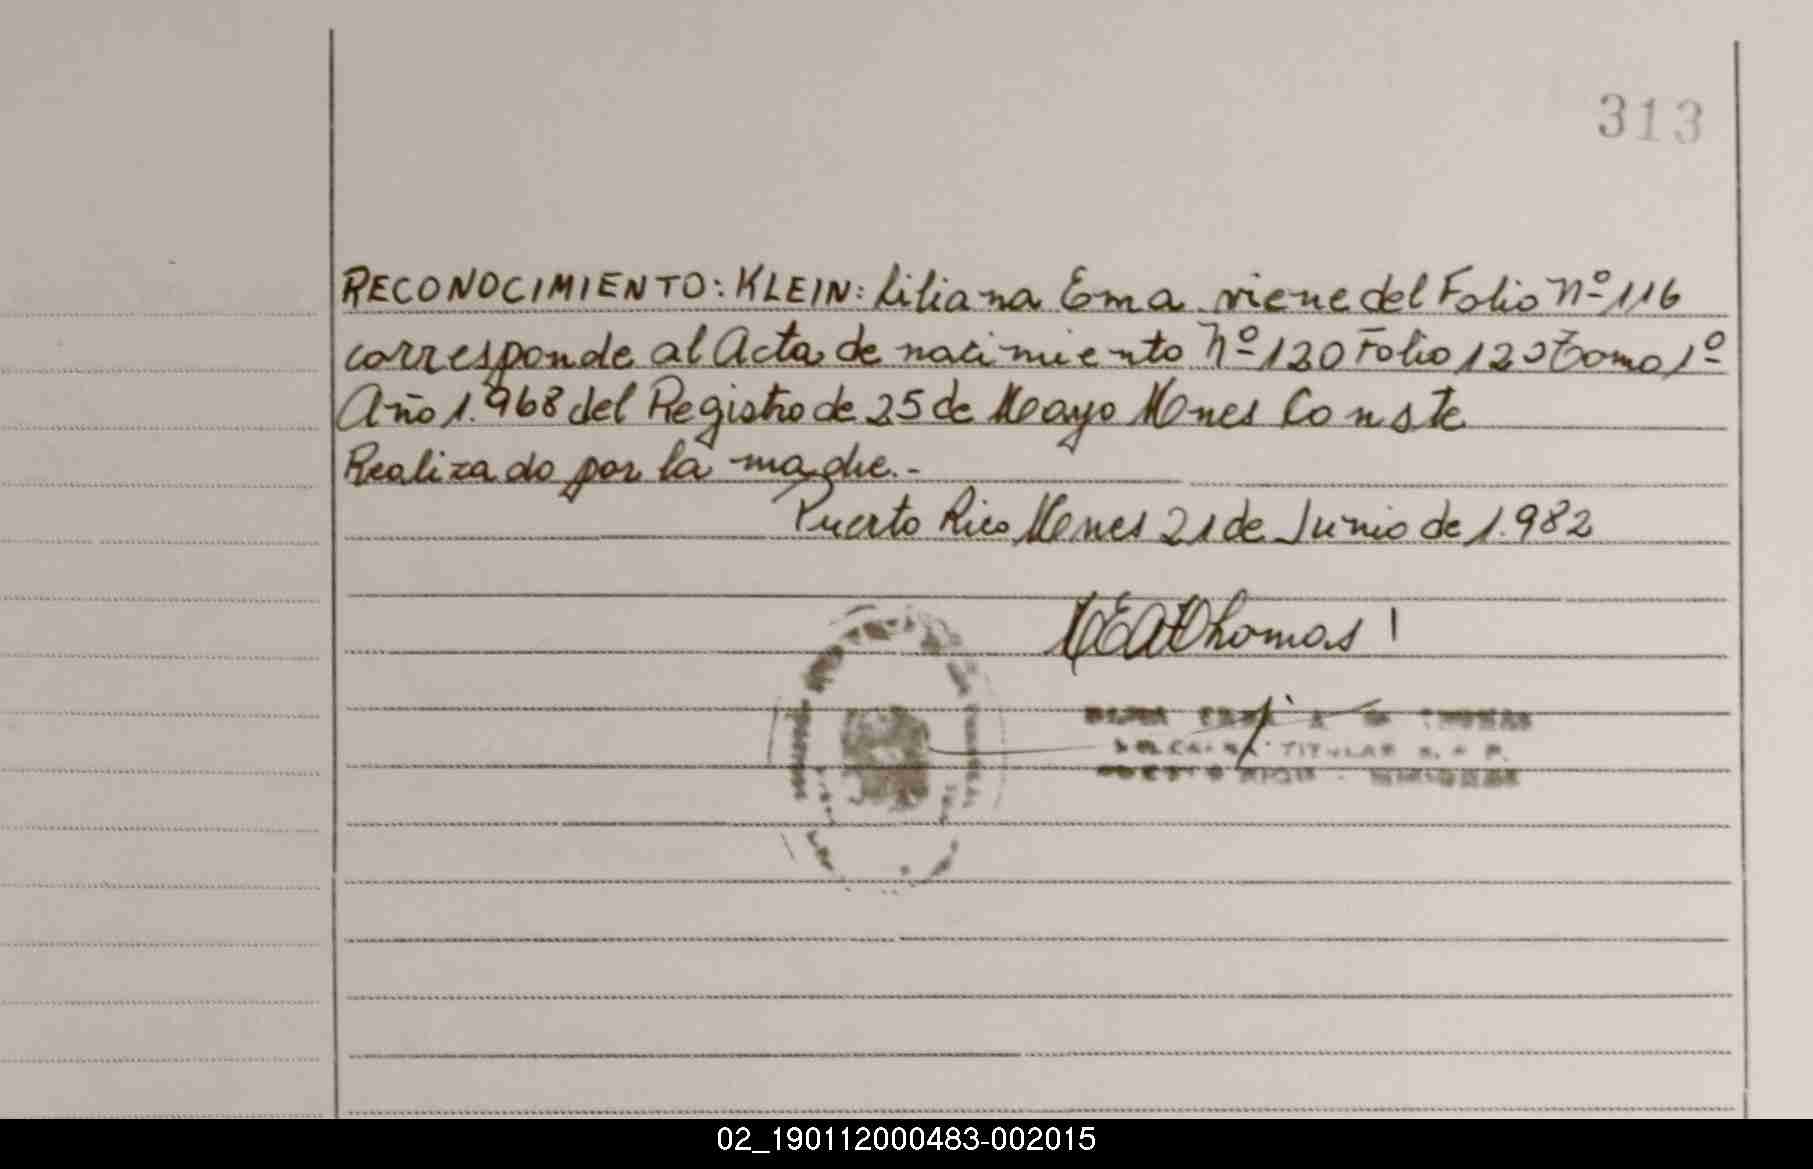 313
RECONOCIMIENTO: KLEIN: Liliana Ema viene del Folio Nº 116
corresponde al Acta de nacimiento Nº 120 Folio 120 Tomo 1º
Año 1.968 del Registro de 25 de Mayo Mnes Conste
Realizado por la madre.-
Puerto Rico Mnes 21 de Junio de 1.982
Thomas
THOMAS
TITULAR
PUERTO RICO - MISIONES
02_190112000483-002015